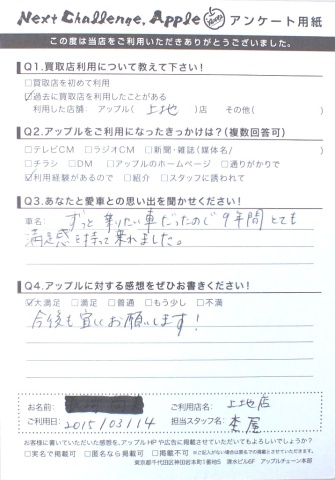 Next Challenge, Apple アンケート用紙
この度は当店をご利用いただきありがとうございました。
Q1.買取店利用について教えて下さい!
□買取店を初めて利用
☑過去に買取店を利用したことがある
利用した店舗: アップル( 上地 )店 その他( )
Q2.アップルをご利用になったきっかけは?(複数回答可)
□テレビCM □ラジオCM □新聞・雑誌(媒体名/ )
□チラシ □DM □アップルのホームページ □通りがかりで
☑利用経験があるので □紹介 □スタッフに誘われて
Q3.あなたと愛車との思い出を聞かせください!
車名: ずっと乗りたい車だったので9年間とても
満足感を持って乗れました。
Q4.アップルに対する感想をぜひお書きください!
☑大満足 □満足 □普通 □もう少し □不満
今後も宜しくお願いします!
お名前: ご利用店名: 上地店
ご利用日: 2015/03/14 担当スタッフ名: 本屋
お客様に書いていただいた感想を、アップルHPや広告に掲載させていただいてもよろしいでしょうか?
□実名で掲載可 □匿名なら掲載可 □掲載不可 ※ご記入がない場合は匿名での掲載とさせていただきます。
東京都千代田区神田岩本町1番地5 清水ビル6F アップルチェーン本部